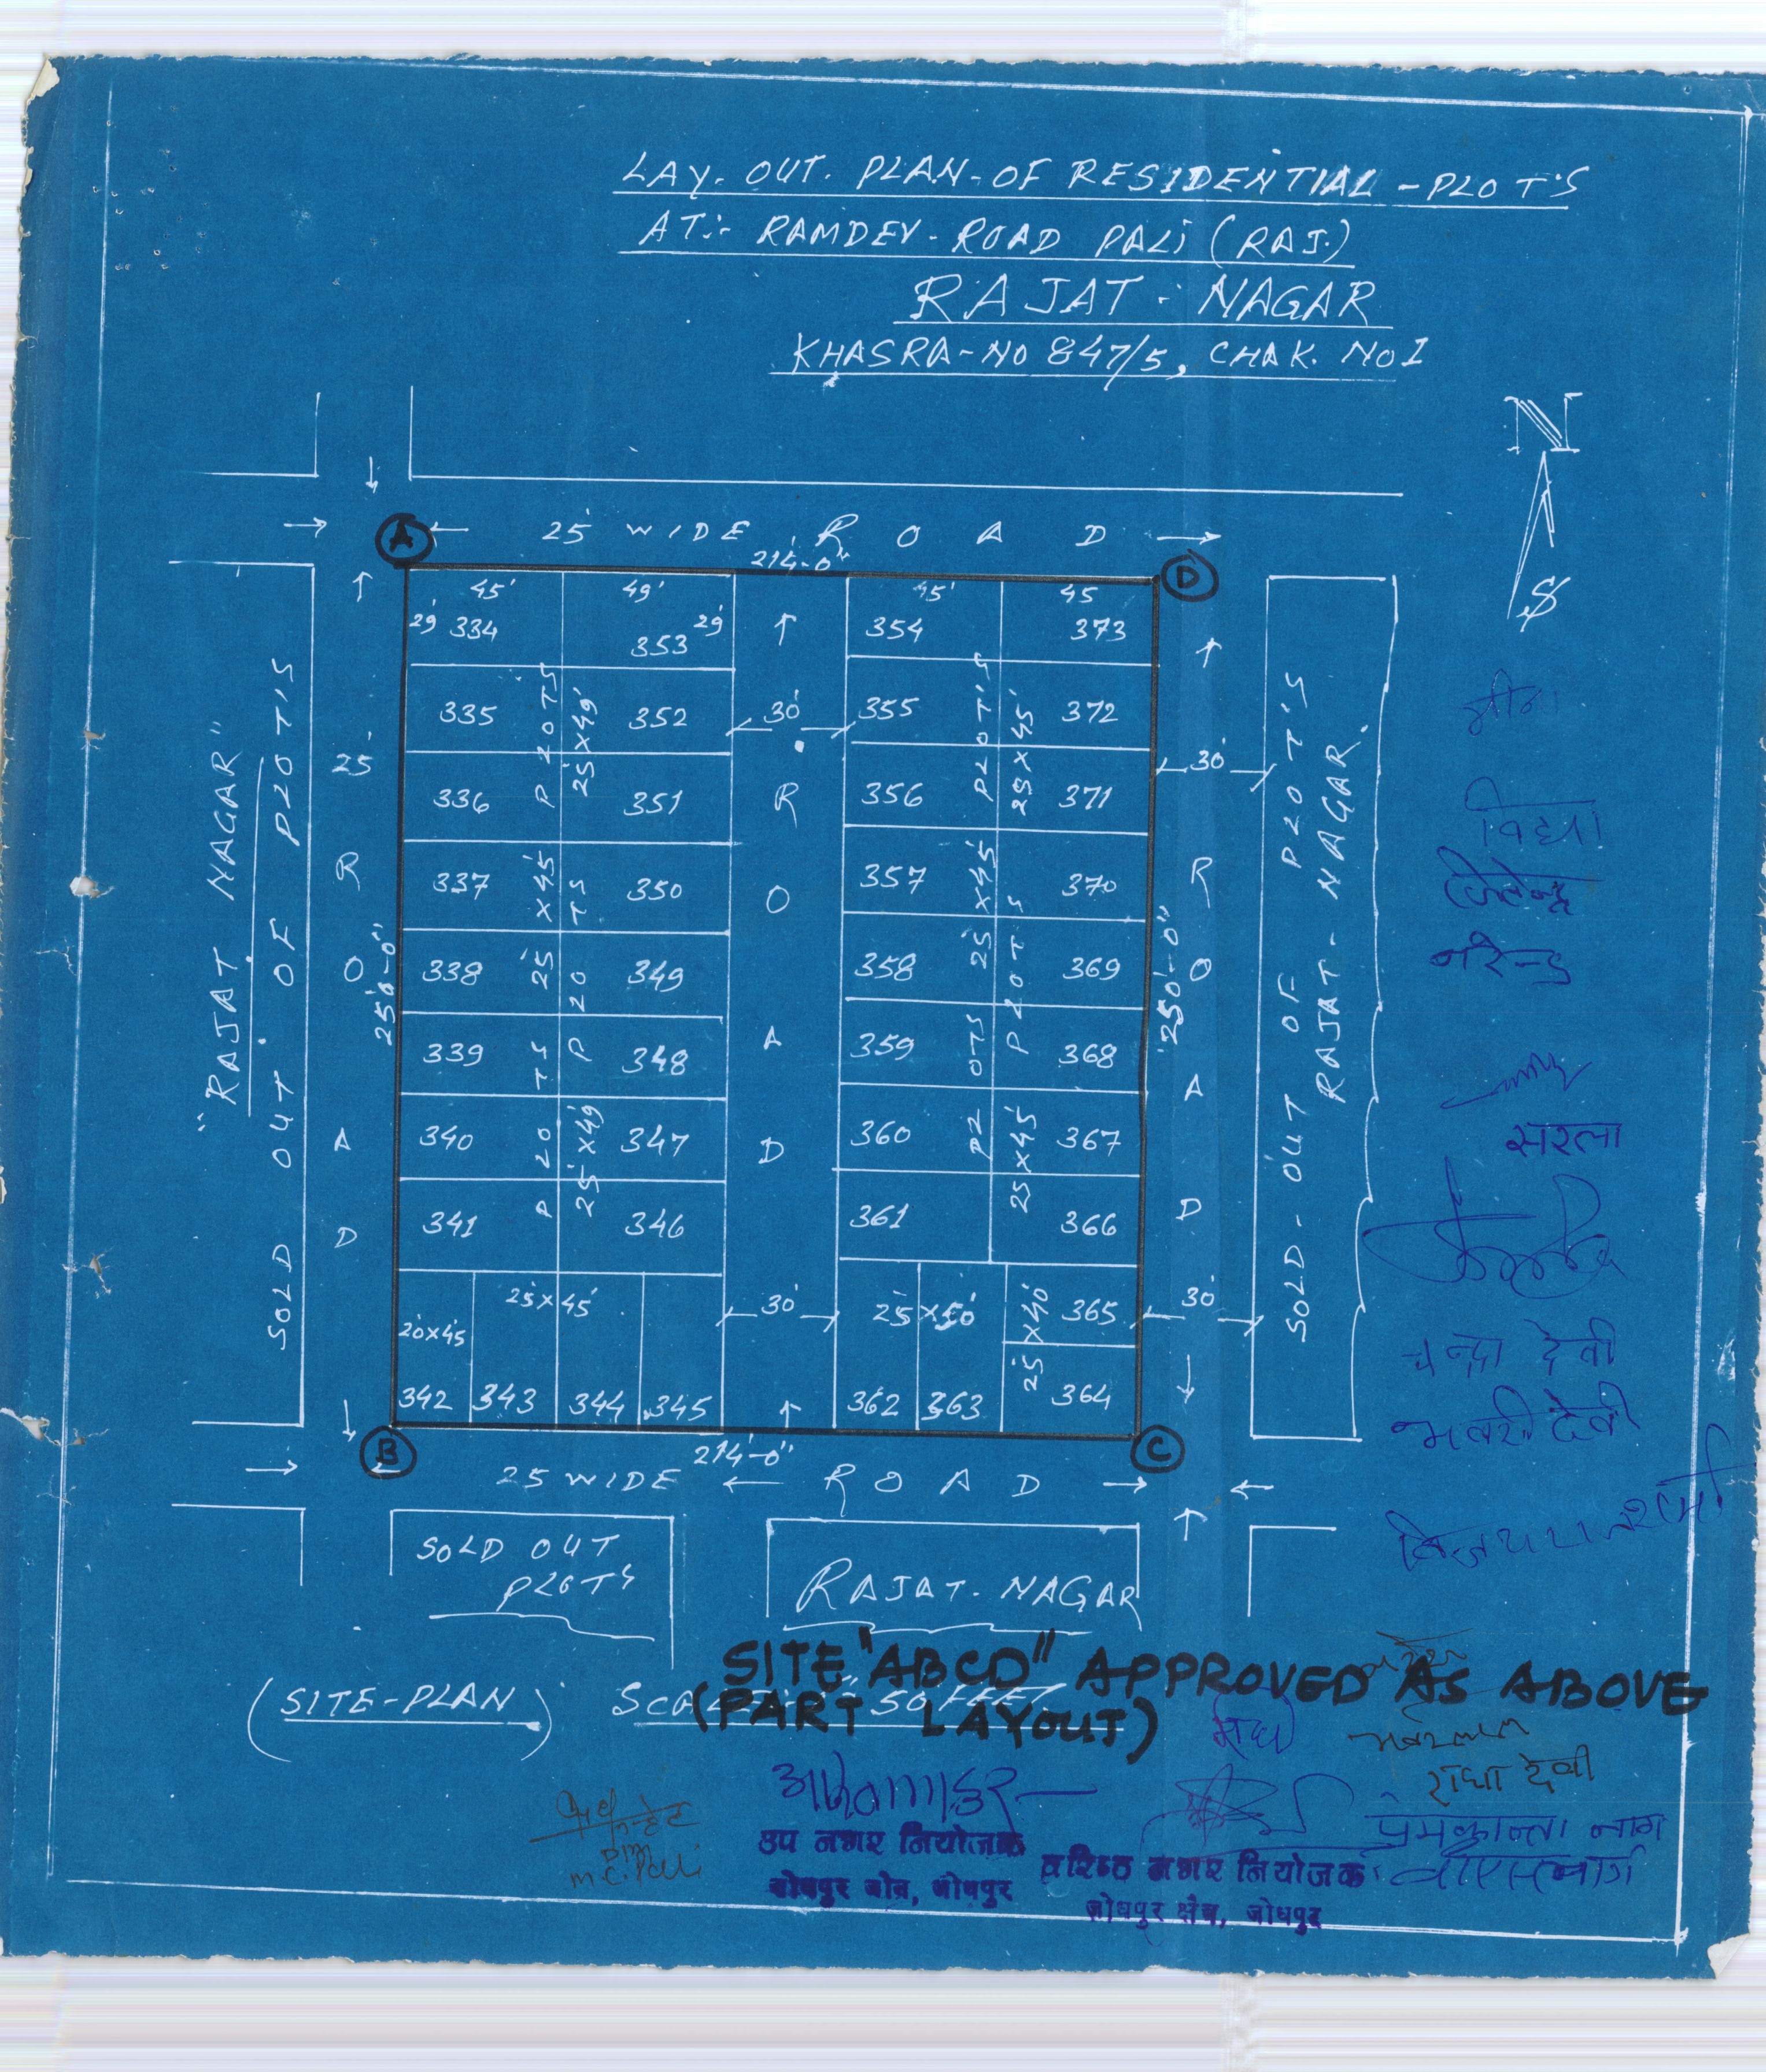 LAY-OUT. PLAN-OF RESIDENTIAL-PLOT'S
AT:- RAMDEV-ROAD PALI (RAJ.)
RAJAT-NAGAR
KHASRA-NO 847/5, CHAK. NO 1
N
S
A
25' WIDE ROAD
214'-0"
D
45' 49' 45' 45
29' 334 353 29' 354 373
335 352 355 372
336 351 356 371
337 350 357 370
338 349 358 369
339 348 359 368
340 347 360 367
341 346 361 366
PLOTS 25'×45' PLOTS
25'×49' PLOTS 25'×49'
PLOT'S 25×45' PLOTS
25×45' PLOTS 25×45
20×45 25×45' 25×50' 25×40' 365
342 343 344 345 362 363 364
"RAJAT NAGAR"
SOLD OUT OF PLOT'S
25' ROAD
250'-0"
30' ROAD 30'
250'-0"
30' ROAD 30'
SOLD-OUT OF PLOT'S
RAJAT-NAGAR.
B
214'-0"
C
25 WIDE ROAD
SOLD OUT
PLOTS
RAJAT-NAGAR
विद्या
जितेन्द्र
नरेन्द्र
सरला
चन्द्रा देवी
भवरी देवी
SITE "ABCD" APPROVED AS ABOVE
(PART LAYOUT)
(SITE-PLAN) SCALE 50 FEET
राधा देवी
प्रेमकान्ता नाग
उप नगर नियोजक
जोधपुर क्षेत्र, जोधपुर
वरिष्ठ नगर नियोजक
जोधपुर क्षेत्र, जोधपुर
M.C. Pali